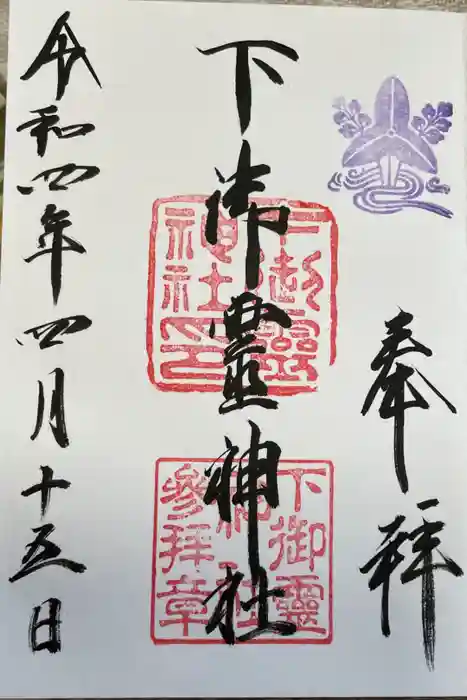 奉拝
下御霊神社
令和四年四月十五日
下御靈
神社印
下御靈
神社
参拝章